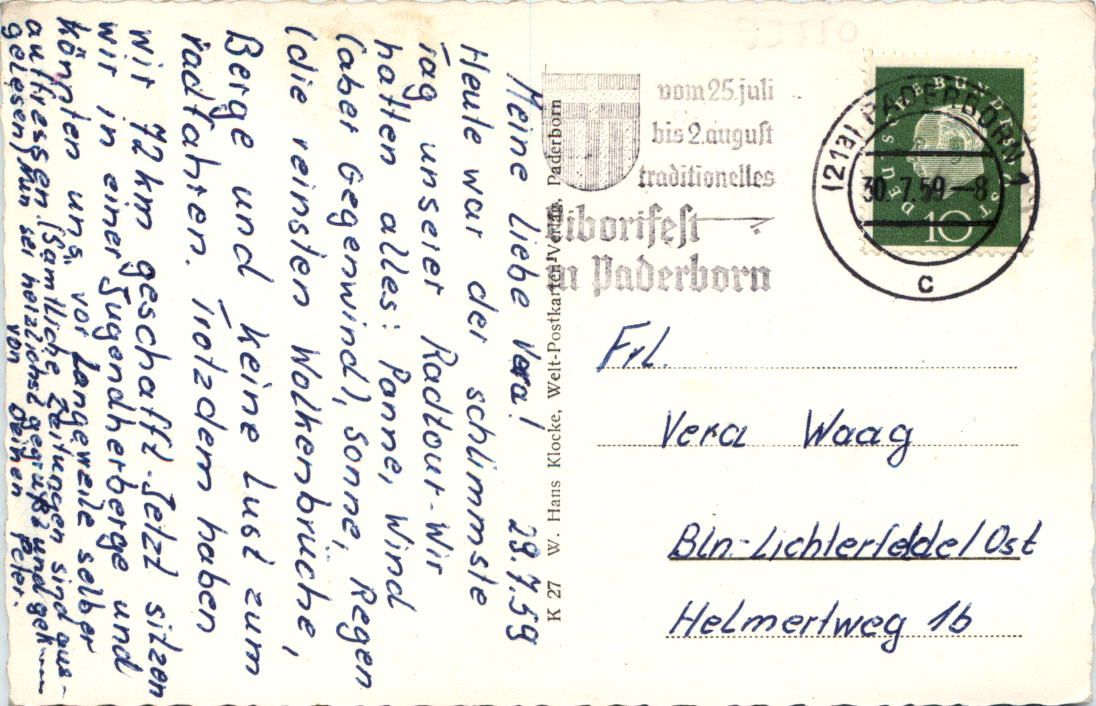 Meine liebe Vera! 29.7.59
Heute war der schlimmste
Tag unserer Radtour. Wir
hatten alles: Panne, Wind
(aber Gegenwind), Sonne, Regen
(die reinsten Wolkenbrüche,
Berge und keine Lust zum
radfahren. Trotzdem haben
wir 72 km geschafft. Jetzt sitzen
wir in einer Jugendherberge und
könnten uns vor Langeweile selber
auffressen. (Sämtliche Zeitungen sind aus-
gelesen) Nun sei herzlichst gegrüßt und gek
von deinen Peter.
K 27 W. Hans Klocke, Welt-Postkarten-Verlag, Paderborn
vom 25. juli
bis 2. august
traditionelles
Liborifest
in Paderborn
(213) PADERBORN 1
30.7.59-8
c
DEUTSCHE BUNDESPOST
10
Frl.
Vera Waag
Bln.-Lichterfelde/Ost
Helmertweg 1b